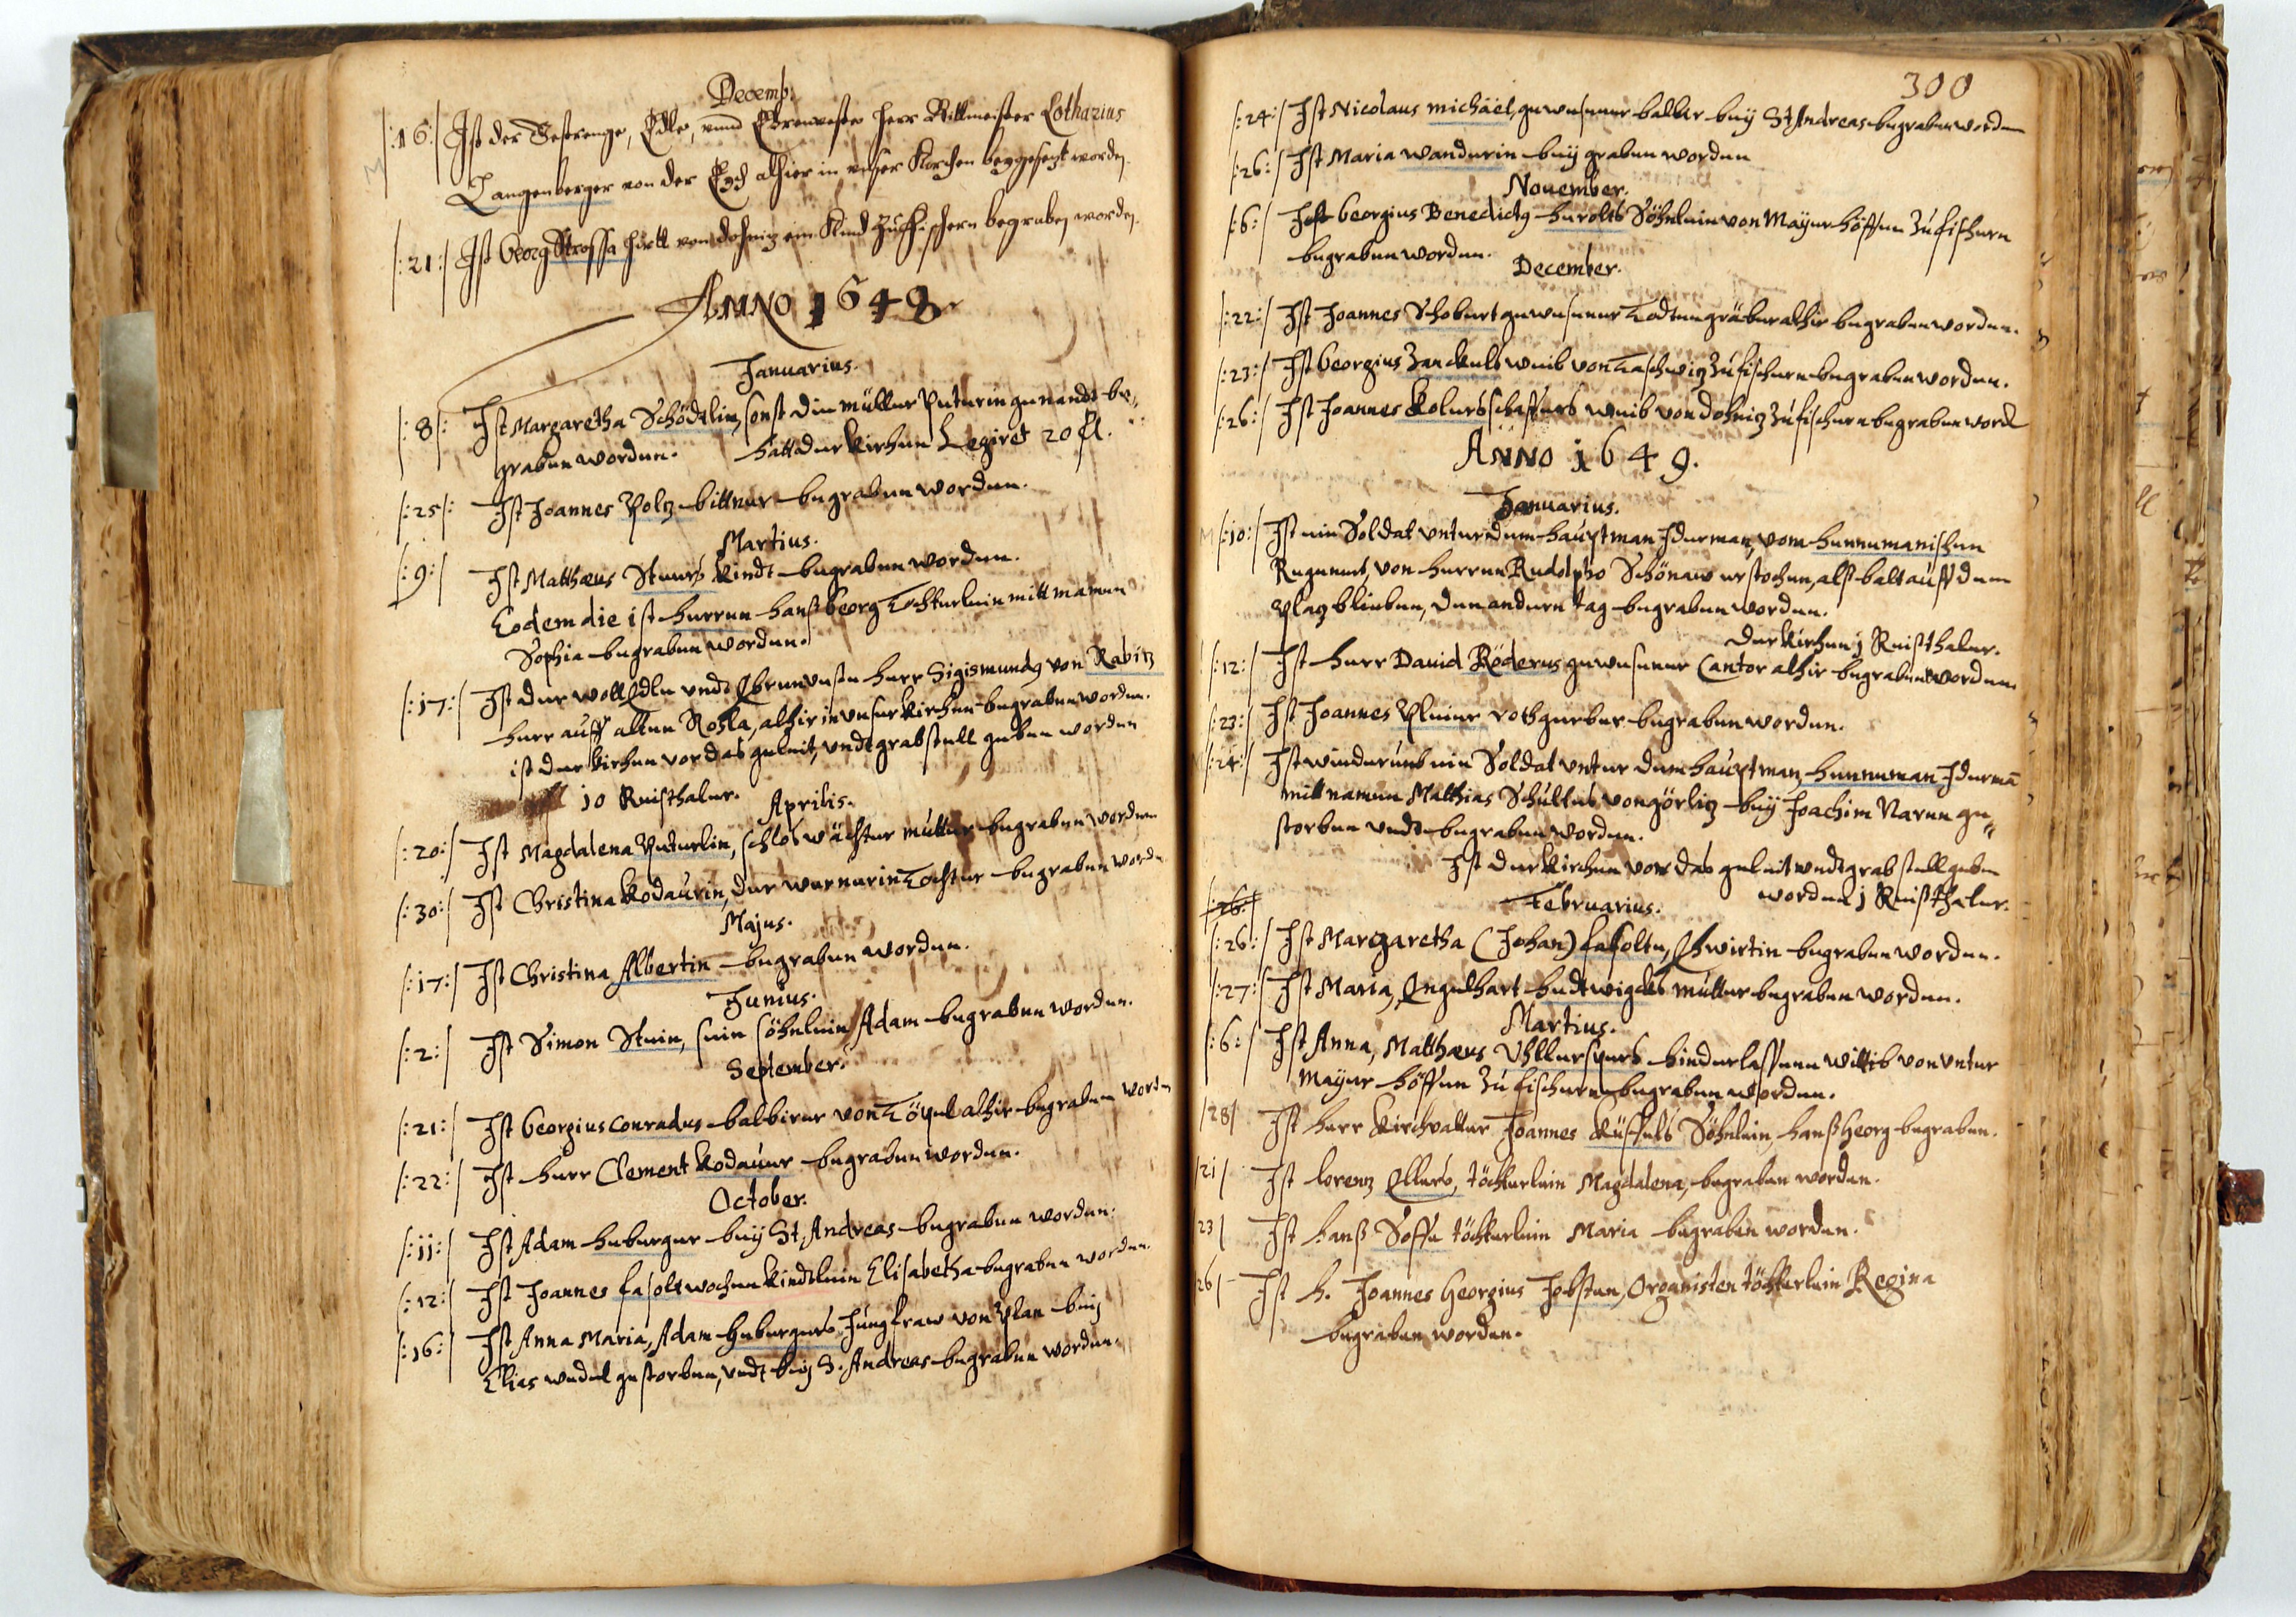 Decemb:
/:16:/ Ist der Gestrenge, Edle, vnnd Ehrenveste Herr Rittmeister Lotharius
Langenberger von der Egh alhier in vnser Kirchen beygesezt worden.
/:21:/ Ist Georg Strossa hirtt von dohniz ein Kind zu Fischern begraben worden.
ANNO 1648
Januarius.
/:8:/ Ist Margaretha Schödtlin, sonst die müller Peterin genandt be,
graben worden. hatt der kirchen Legiret 20 fl.
/:25:/ Ist Joannes Poltz bittner begraben worden.
Martius.
/:9:/ Ist Matthæus Steürs kindt begraben worden.
Eodem die ist herren hanß Georg Tochterlein mitt namen
Sophia begraben worden.
/:17:/ Ist der woll Edle vndt Ehrenveste herr Sigismundg von Rabitz
herr auff alten Rohla, alhir in vnser kirchen begraben worden.
ist der kirchen vor das geleit, vndt grabstell geben worden
10 Reisthaler.
Aprilis.
/:20:/ Ist Magdalena Peterlin, schlos wächter mutter begraben worden
/:30:/ Ist Christina Kodaurin, der warnerin Tochter begraben worden
Majus.
/:17:/ Ist Christina Albertin begraben worden.
Junius.
/:2:/ Ist Simon Stein, sein söhnlein Adam begraben worden.
September.
/:21:/ Ist Georgius Conradus balbirer von Töpel alhir begraben worden
/:22:/ Ist herr Clement Kodauer begraben worden.
October.
/:11:/ Ist Adam heberger beÿ St. Andreas begraben worden.
/:12:/ Ist Joannes fasolt wochen kindtlein Elisabetha begraben worden.
/:16:/ Ist Anna Maria, Adam hebergers Jungfraw von Plan beÿ
Elias wedel gestorben, vndt beÿ S. Andreas begraben worden.
300
/:24:/ Ist Nicolaus michäel, gewesener balbir beÿ St Andreas begraben worden
/:26:/ Ist Maria wanderin beÿ graben worden
Nouember.
/:6:/ Ist Georgius Benedictg herolts Söhnlein von Maÿerhöffen zu fischern
begraben worden.
December.
/:22:/ Ist Joannes Schobert gewesener Todtengräber alhir begraben worden.
/:23:/ Ist Georgius Zanckels weib von Taschwiz zu fischern begraben worden.
/:26:/ Ist Joannes Kolers schaffers weib von dohniz zu fischern begraben word
ANNO 1649.
Januarius.
/:10:/ Ist ein Soldat vnter dem hauptman Iderman, vom hennemanischen
Regement, von herren Rudolpho Schönaw erstochen, alß balt auff dem
Plaz blieben, den andern tag begraben worden.
der kirchen 1 Reisthaler.
/:12:/ Ist herr Dauid Röderus gewesener Cantor alhir begraben worden.
/:23:/ Ist Joannes Pleier rothgerber begraben worden.
/:24:/ Ist wiederumb ein Soldat vnter dem hauptman henneman Idermā
mitt namen Matthias Schultes von görliz beÿ Joachim Naren ge
storben vndt begraben worden.
Ist der kirchen vor das geleit vndt grabstell geben
worden 1 Reißthaler.
/:26:/
Februarius.
/:26:/ Ist Margaretha (Johan) fasolts, Ehwirtin begraben worden.
/:27:/ Ist Maria, Engelhart hedtwigcks mutter begraben worden.
Martius.
/:6:/ Ist Anna, Matthæus hinderlassene wittib von vnter
Maÿer höffen zu fischern begraben worden.
/28/ Ist herr kirchvatter Joannes Küffels Söhnlein, hanß Georg begraben.
21/ Ist lorenz Ellers, töchterlein Magdalena, begraben worden.
23/ Ist hanß Soffe töchterlein Maria begraben worden.
26/ Ist h. Joannes Georgius Jobsten, Organisten töchterlein Regina
begraben worden.